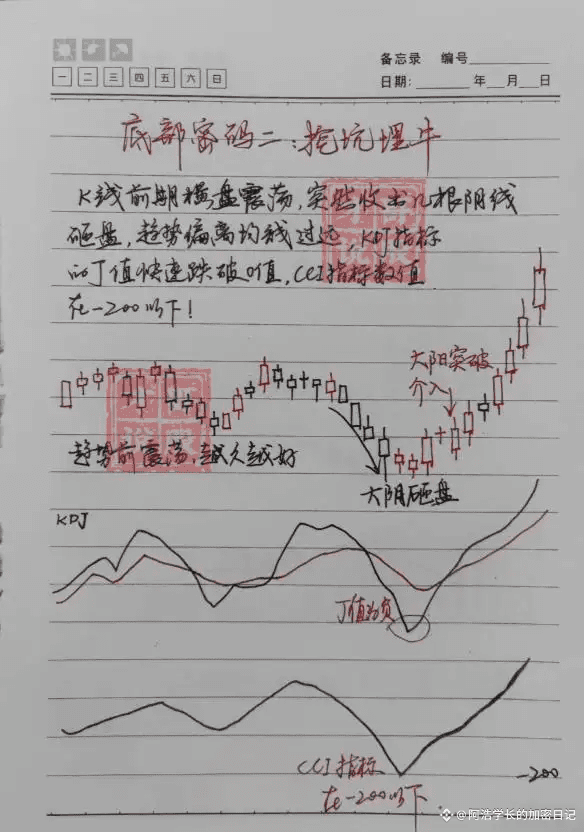 备忘录 编号
一 二 三 四 五 六 日
日期: 年 月 日
底部密码二:挖坑埋牛
K线前期横盘震荡,突然收出几根阴线
砸盘,趋势偏离均线过远,KDJ指标
的J值快速跌破0值,CCI指标数值
在-200以下!
大阳突破
介入
趋势前震荡,越久越好
大阴砸盘
KDJ
J值为负
CCI指标
在-200以下
-200
@阿浩学长的加密日记